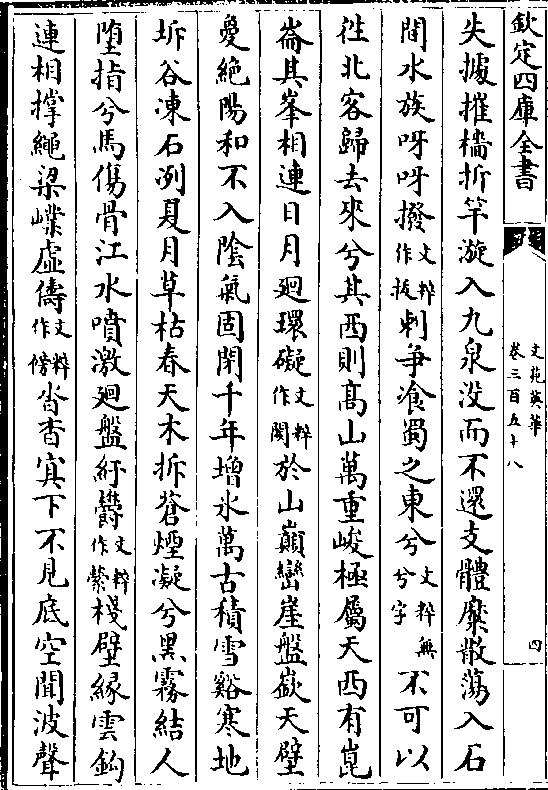 欽定四庫全書
文苑英華
卷三百五十八
四
失據摧檣折竿漩入九泉没而不還支體糜散蕩入石
間水族呀呀撥文粹作拔刺爭飡蜀之東兮文粹無兮字不可以
徃北客歸去來兮其西則髙山萬重峻極屬天西有崑
崙其峯相連日月迴環礙文粹作閡於山巔巒崖盤嶔天壁
夐絶陽和不入陰氣固閉千年增氷萬古積雪谿寒地
坼谷凍石冽夏月草枯春天木拆蒼煙凝兮黒霧結人
墮指兮馬傷骨江水噴激迴盤紆欝文粹作縈棧壁縁雲鈎
連相撑繩梁㠍虛儔文粹作傍沓杳㝠下不見底空聞波聲